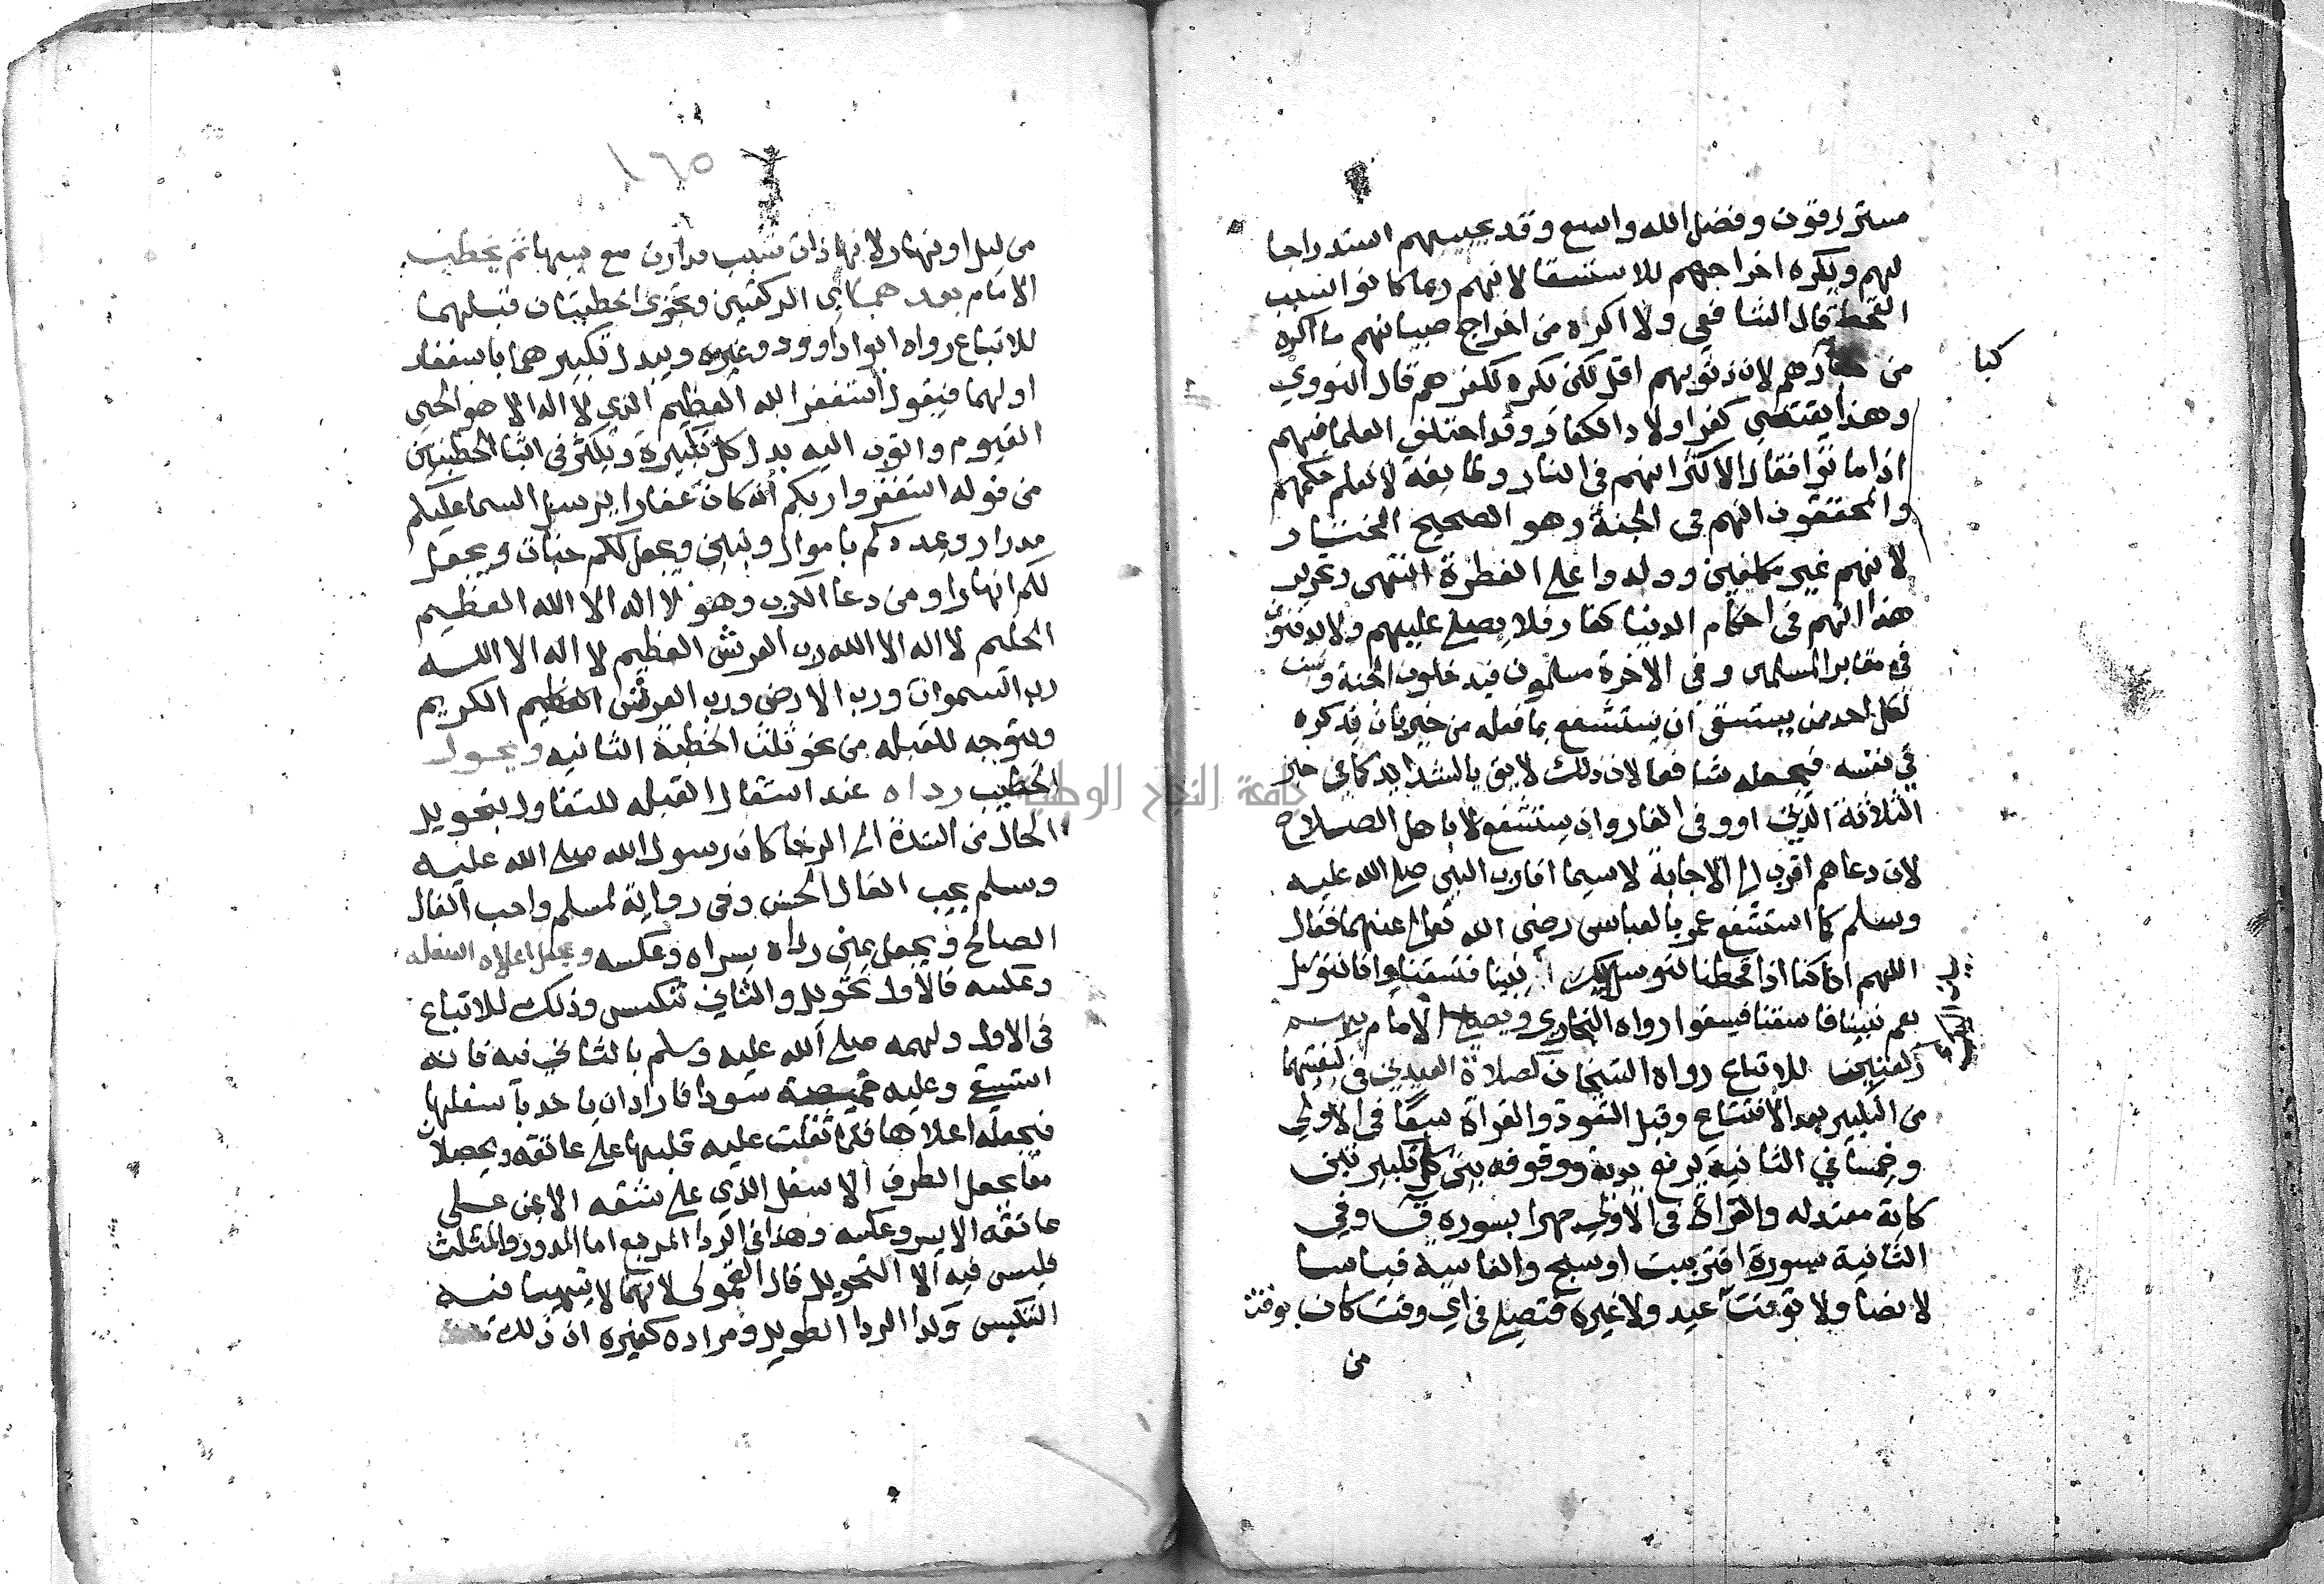 مسترزقون وفضل الله واسع وقد يجيبهم استدراجا
لهم ويكره اخراجهم للاستسقا لانهم ربما كانوا السبب
القحط قال الشافعي ولا اكره من اخراج صبيانهم ما اكره
من كبارهم لان ذنوبهم اقل لكن يكره لكفرهم قال النووي
كبا
وهذا يقتضي كفر اولاد الكفار وقد اختلف العلما فيهم
اذا ماتوا فقال الاكثر انهم في النار وطايفة لا نعلم حكمهم
والمحققون انهم في الجنة وهو الصحيح المختار
لانهم غير مكلفين وولدوا على الفطرة انتهى وتحرير
هذا انهم في احكام الدنيا كفار فلا يصلى عليهم ولا يدفنون
في مقابر المسلمين وفي الاخرة مسلمون فيدخلون الجنة وسن
لكل احد ممن يستسقي ان يستشفع بما فعله من خير بان يذكره
في نفسه فيجعله شافعا لان ذلك لايق بالشدايد كما في خبر
الثلاثة الذين اووا في الغار وان يستشفع لا باهل الصلاح
لان دعاهم اقرب الى الاجابة لاسيما اقارب النبي صلى الله عليه
وسلم كما استشفع عمر بالعباس رضي الله تعالى عنهما فقال
اللهم انا كنا اذا قحطنا نتوسل اليك نبينا فتسقينا وانا نتوسل
بعم نبينا فاسقنا فيسقوا رواه البخاري ويصلي الامام بهم
ركعتين للاتباع رواه الشيخان كصلاة العيدين في كيفيتهما
من التكبير بعد الافتتاح وقبل التعوذ والقراة سبعا في الاولى
وخمسا في الثانية يرفع يديه ووقوفه بين كل تكبيرتين
كاية معتدله والقراة في الاولى جهرا بسورة ق وفي
الثانية سورة اقتربت او سبح والغاشية قياسا
لا نصا ولا توقت عيد ولا غيره فتصلى في اي وقت كان
من
١٦٥
من ليل او نهار لانها ذات سبب فدارت مع سببها ثم يخطب
الامام بعدهما اي الركعتين وتجزي الخطبتان قبلهما
للاتباع رواه ابو داوود وغيره ويبدل تكبيرهما باستغفار
اولهما فيقول استغفر الله العظيم الذي لا اله الا هو الحي
القيوم واتوب اليه بدل كل تكبيرة ويكثر في اثنا الخطبتين
من قوله استغفروا ربكم انه كان غفارا يرسل السما عليكم
مدرارا ويمددكم باموال وبنين ويجعل لكم جنات ويجعل
لكم انهارا ومن دعا الكرب وهو لا اله الا الله العظيم
الحليم لا اله الا الله رب العرش العظيم لا اله الا الله
رب السموات ورب الارض ورب العرش العظيم الكريم
ويتوجه للقبله من نحو ثلث الخطبة الثانيه ويحول
الخطيب رداه عند استقبال القبله للتفاول بتحويل
الحال من الشدة الى الرخا كان رسول الله صلى الله عليه
وسلم يحب الفال الحسن وفي رواية لمسلم واحب الفال
الصالح فيجعل يمين رداه يسراه وعكسه ويجعل اعلاه اسفله
وعكسه فالاول تحويل والثاني تنكيس وذلك للاتباع
في الاول ولهمه صلى الله عليه وسلم بالثاني فيه فانه
استسقى وعليه خميصة سودا فاراد ان ياخذ باسفلها
فيجعله اعلاها فلما ثقلت عليه قلبها على عاتقه ويحصلان
معا بجعل الطرف الاسفل الذي على شقه الايمن على
عاتقه الايسر وعكسه وهذا في الردا المربع اما المدور والمثلث
فليس فيه الا التحويل قال القمولي لانهما لا يتهيا فيه
التنكيس وكذا الردا الطويل ومراده كغيره ان ذلك
جامعة النجاح الوطنية